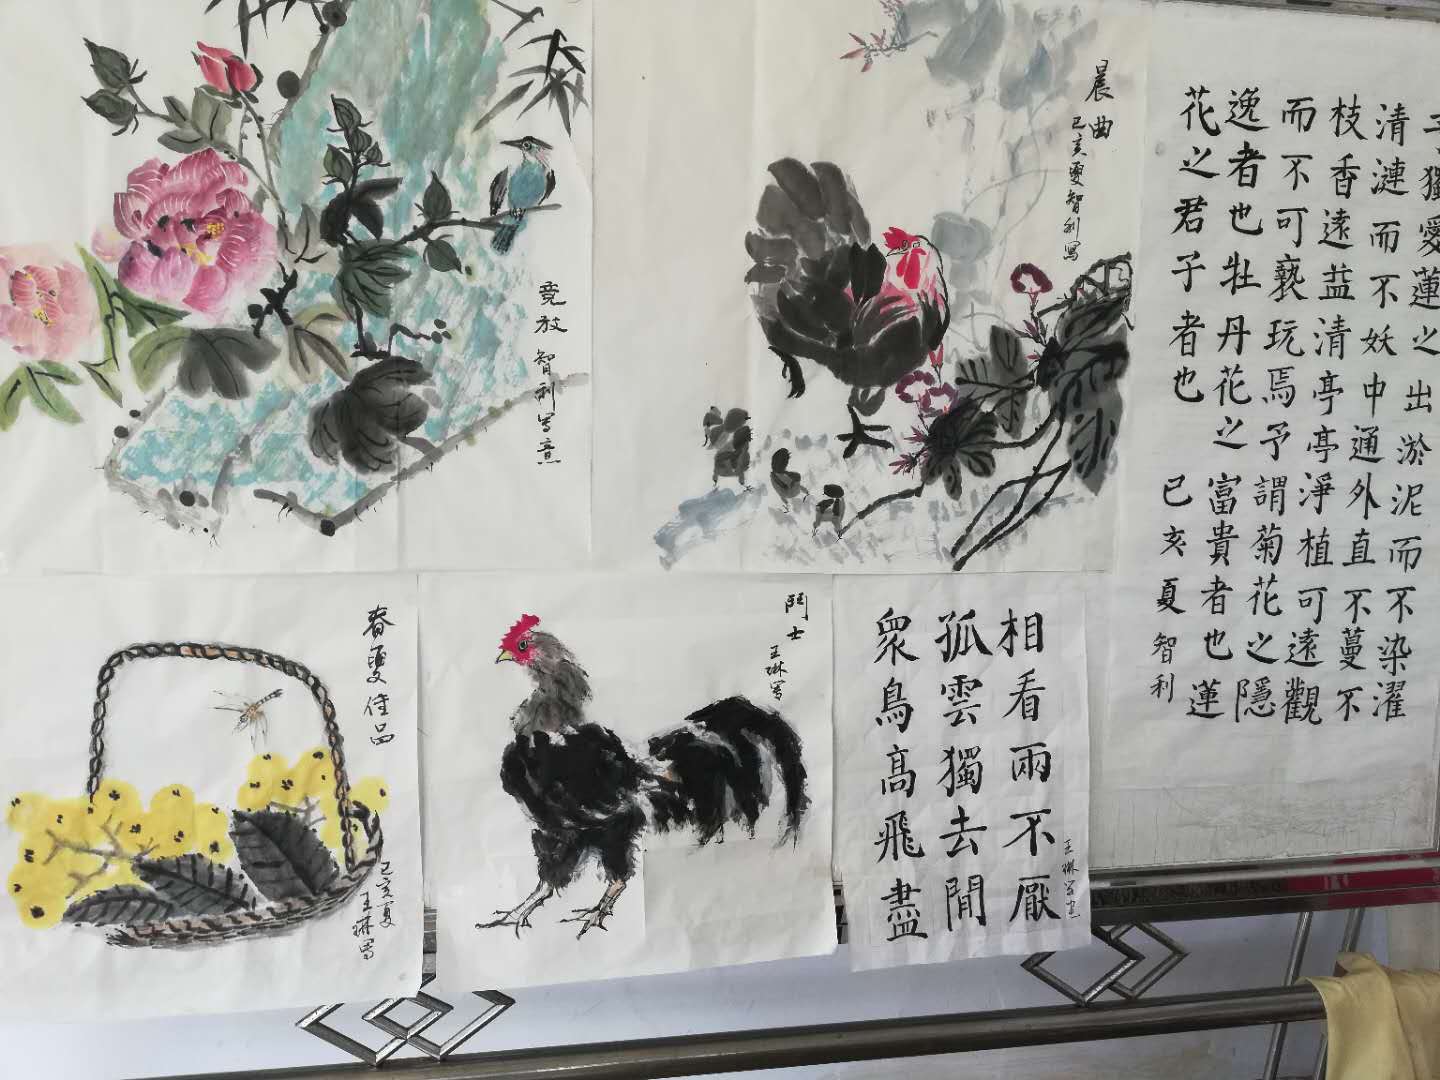 竞放 智利写意
晨曲
己亥夏智利写
予獨愛蓮之出淤泥而不染濯
清漣而不妖中通外直不蔓不
枝香遠益清亭亭淨植可遠觀
而不可褻玩焉予謂菊花之隱
逸者也牡丹花之富貴者也蓮
花之君子者也 己亥夏 智利
春夏佳品
己亥夏
王琳写
鬥士
王琳写
相看兩不厭
孤雲獨去閒
眾鳥高飛盡
王琳写